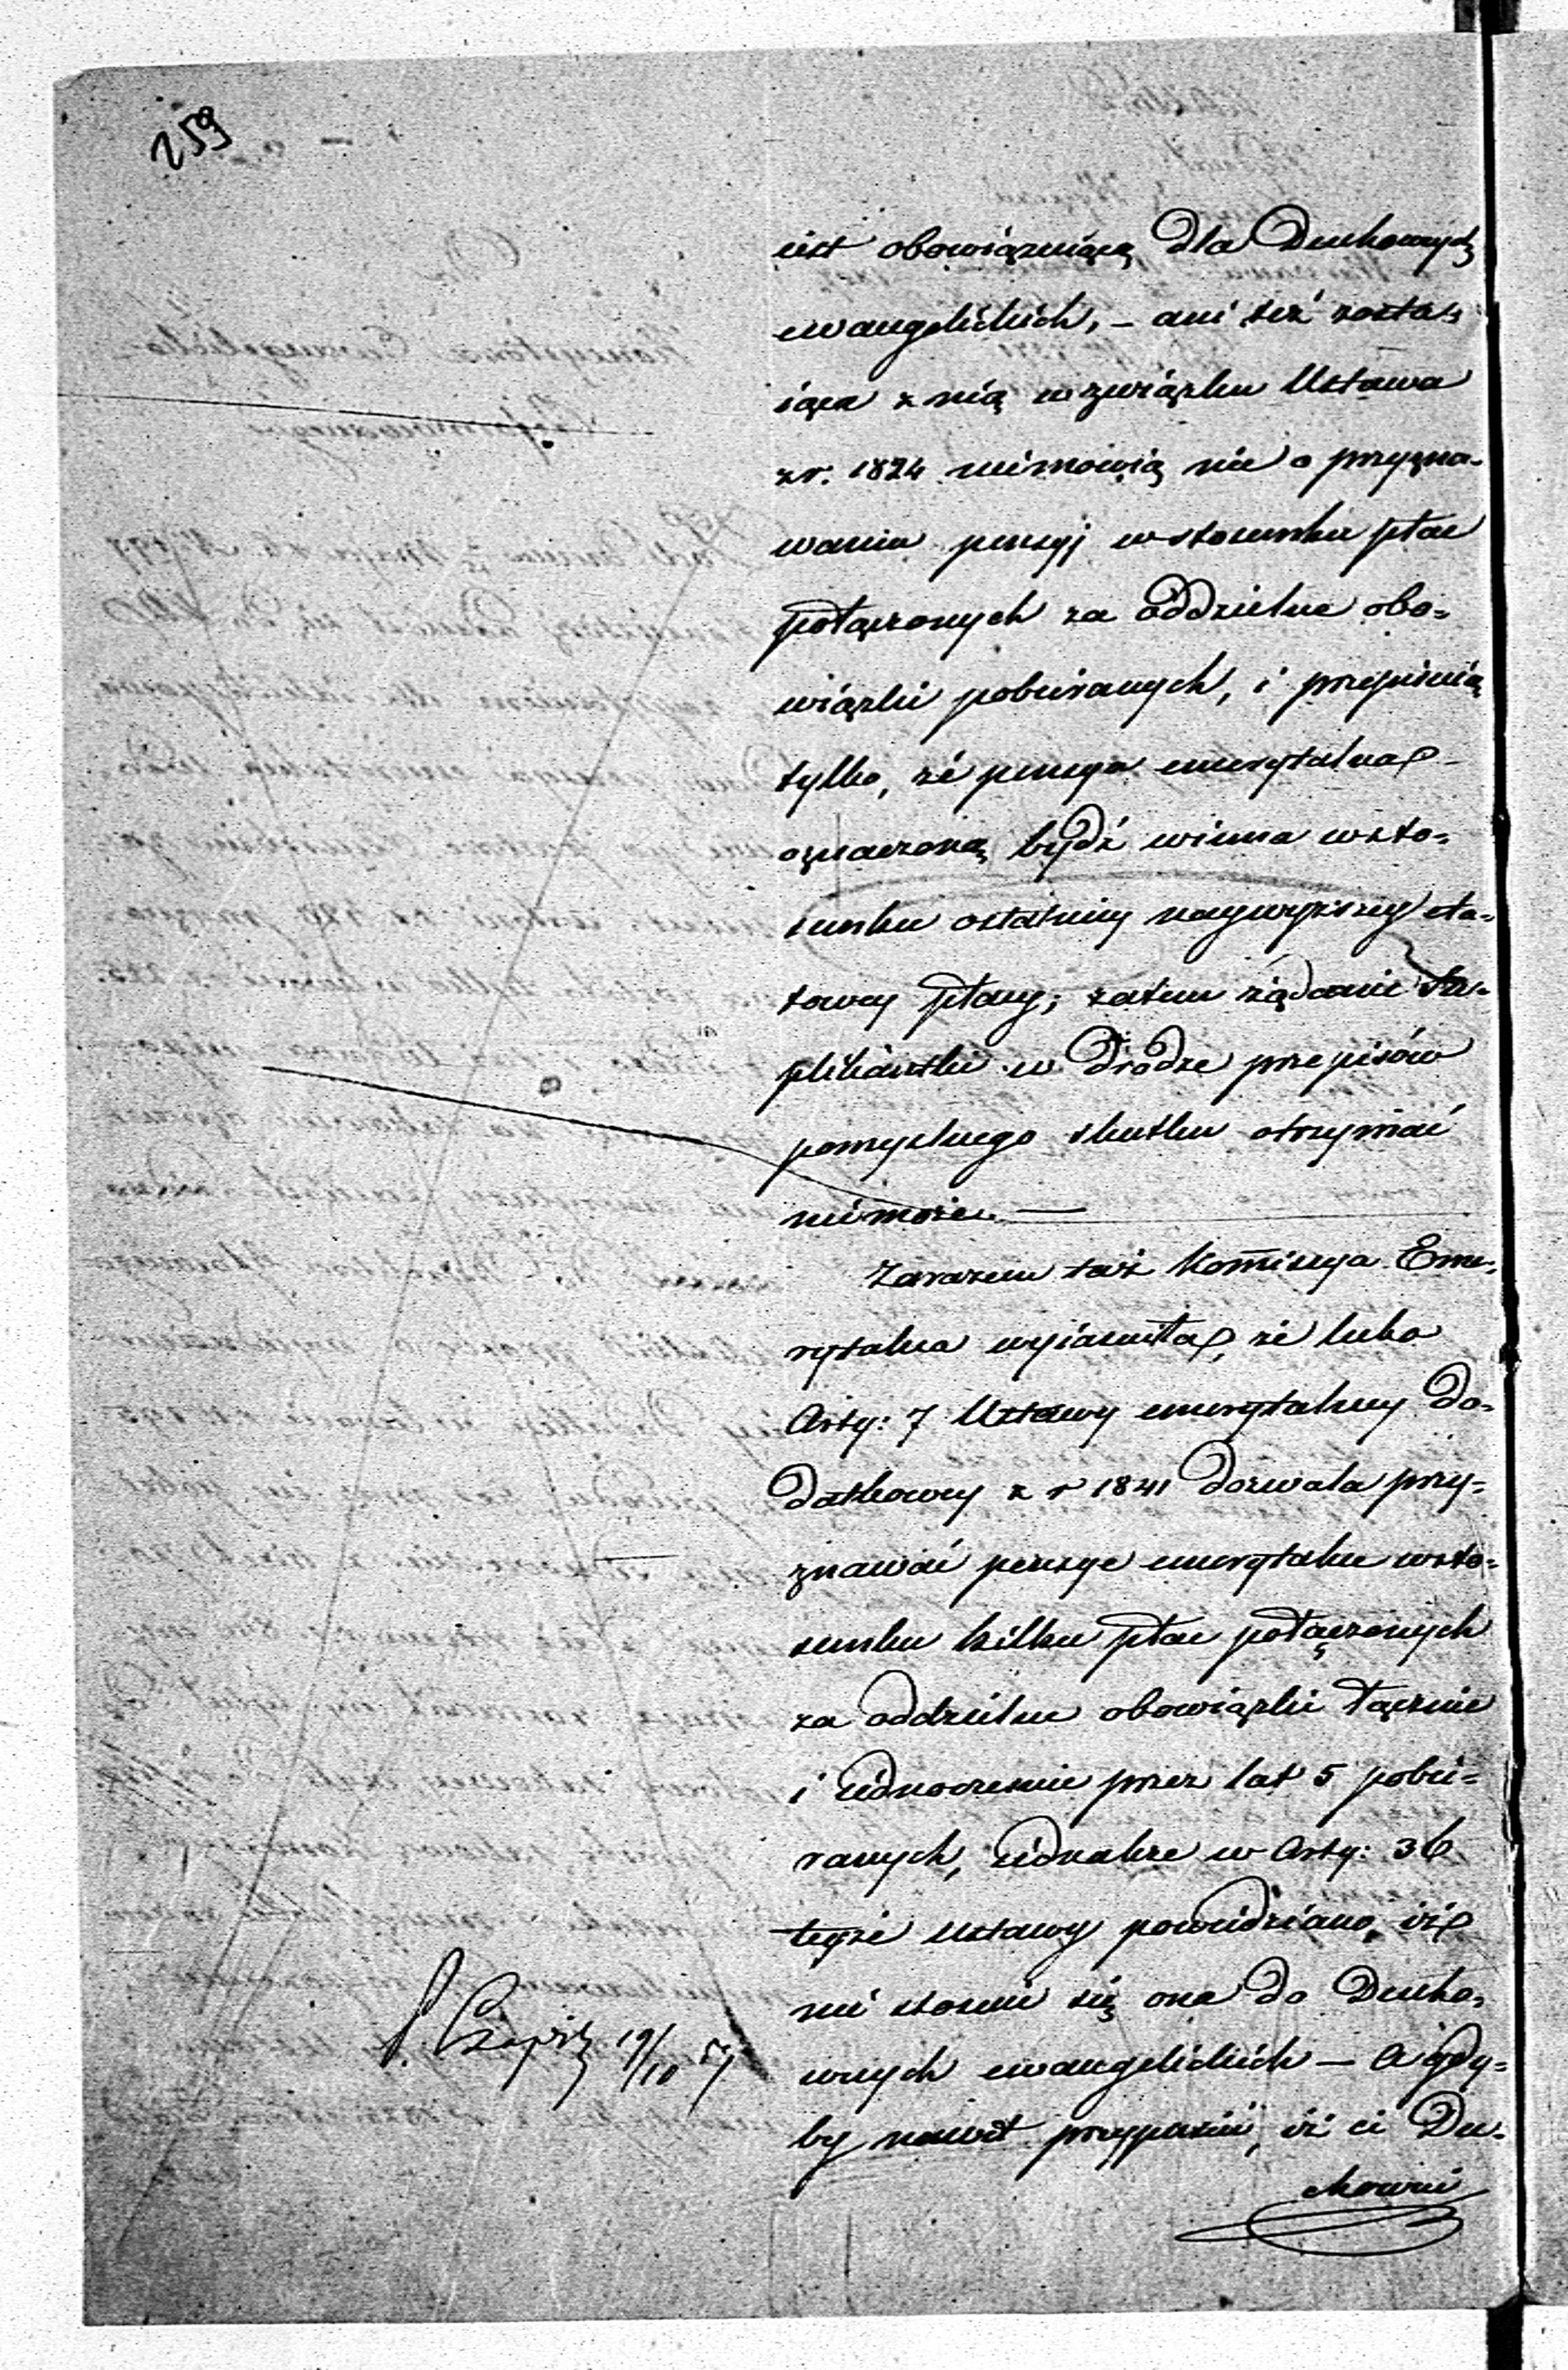 259
iest obowiązuiącą dla Duchownych
ewangelickich, – ani też zosta-
iąca z nią w związku Ustawa
z r. 1824 niemówią nic o przyzna-
waniu pensyj w stosunku płac
połączonych za oddzielne obo-
wiązki pobieranych, i przepisuią
tylko, że pensya emerytalna
oznaczoną bydź winna w sto-
sunku ostatniey naywyższey eta-
towey płacy; zatem żądanie Su-
plikantki w drodze przepisów
pomyślnego skutku otrzymać
niemoże. —
Zarazem taż Kommisya Eme-
rytalna wyiaśniła, że lubo
Arty: 7 Ustawy emerytalney do-
datkowey z r 1841 dozwala przy-
znawać pensye emerytalne w sto-
sunku kilku płac połączonych
za oddzielne obowiązki łącznie
i iednocześnie przez lat 5 pobie-
ranych, iednakże w Arty: 36
teyże ustawy powiedziano, iż
nie stosuie się ona do Ducho-
wnych ewangelickich — A gdy-
by nawet przypuścić, iż ci Du-
chowni
19/10 57